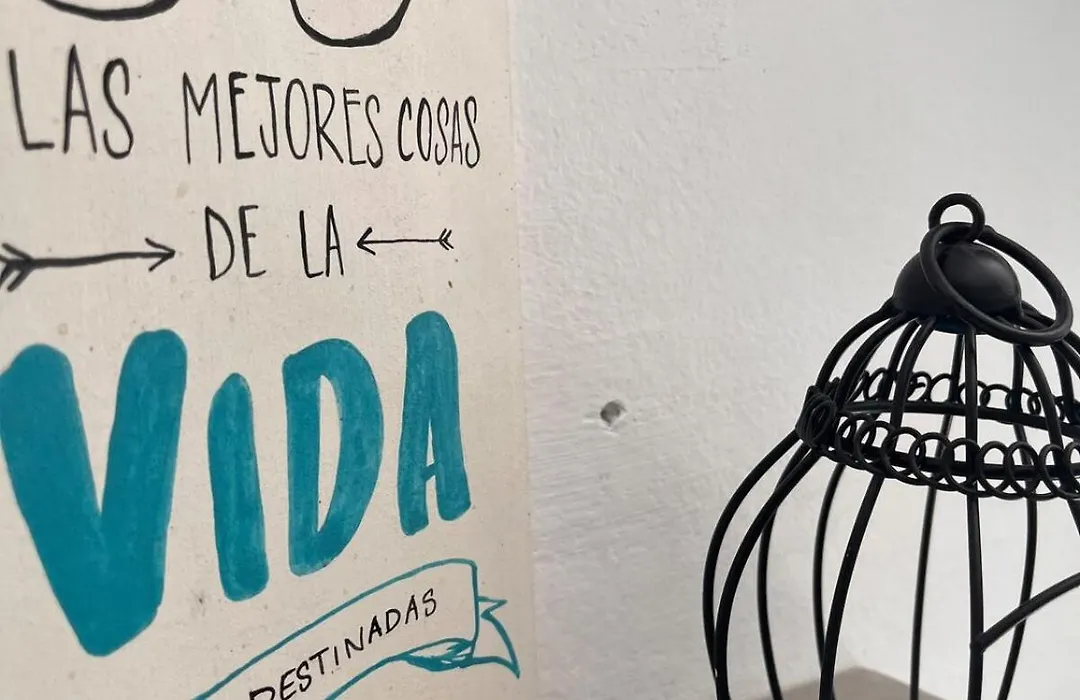 LAS MEJORES COSAS
DE LA
VIDA
DESTINADAS